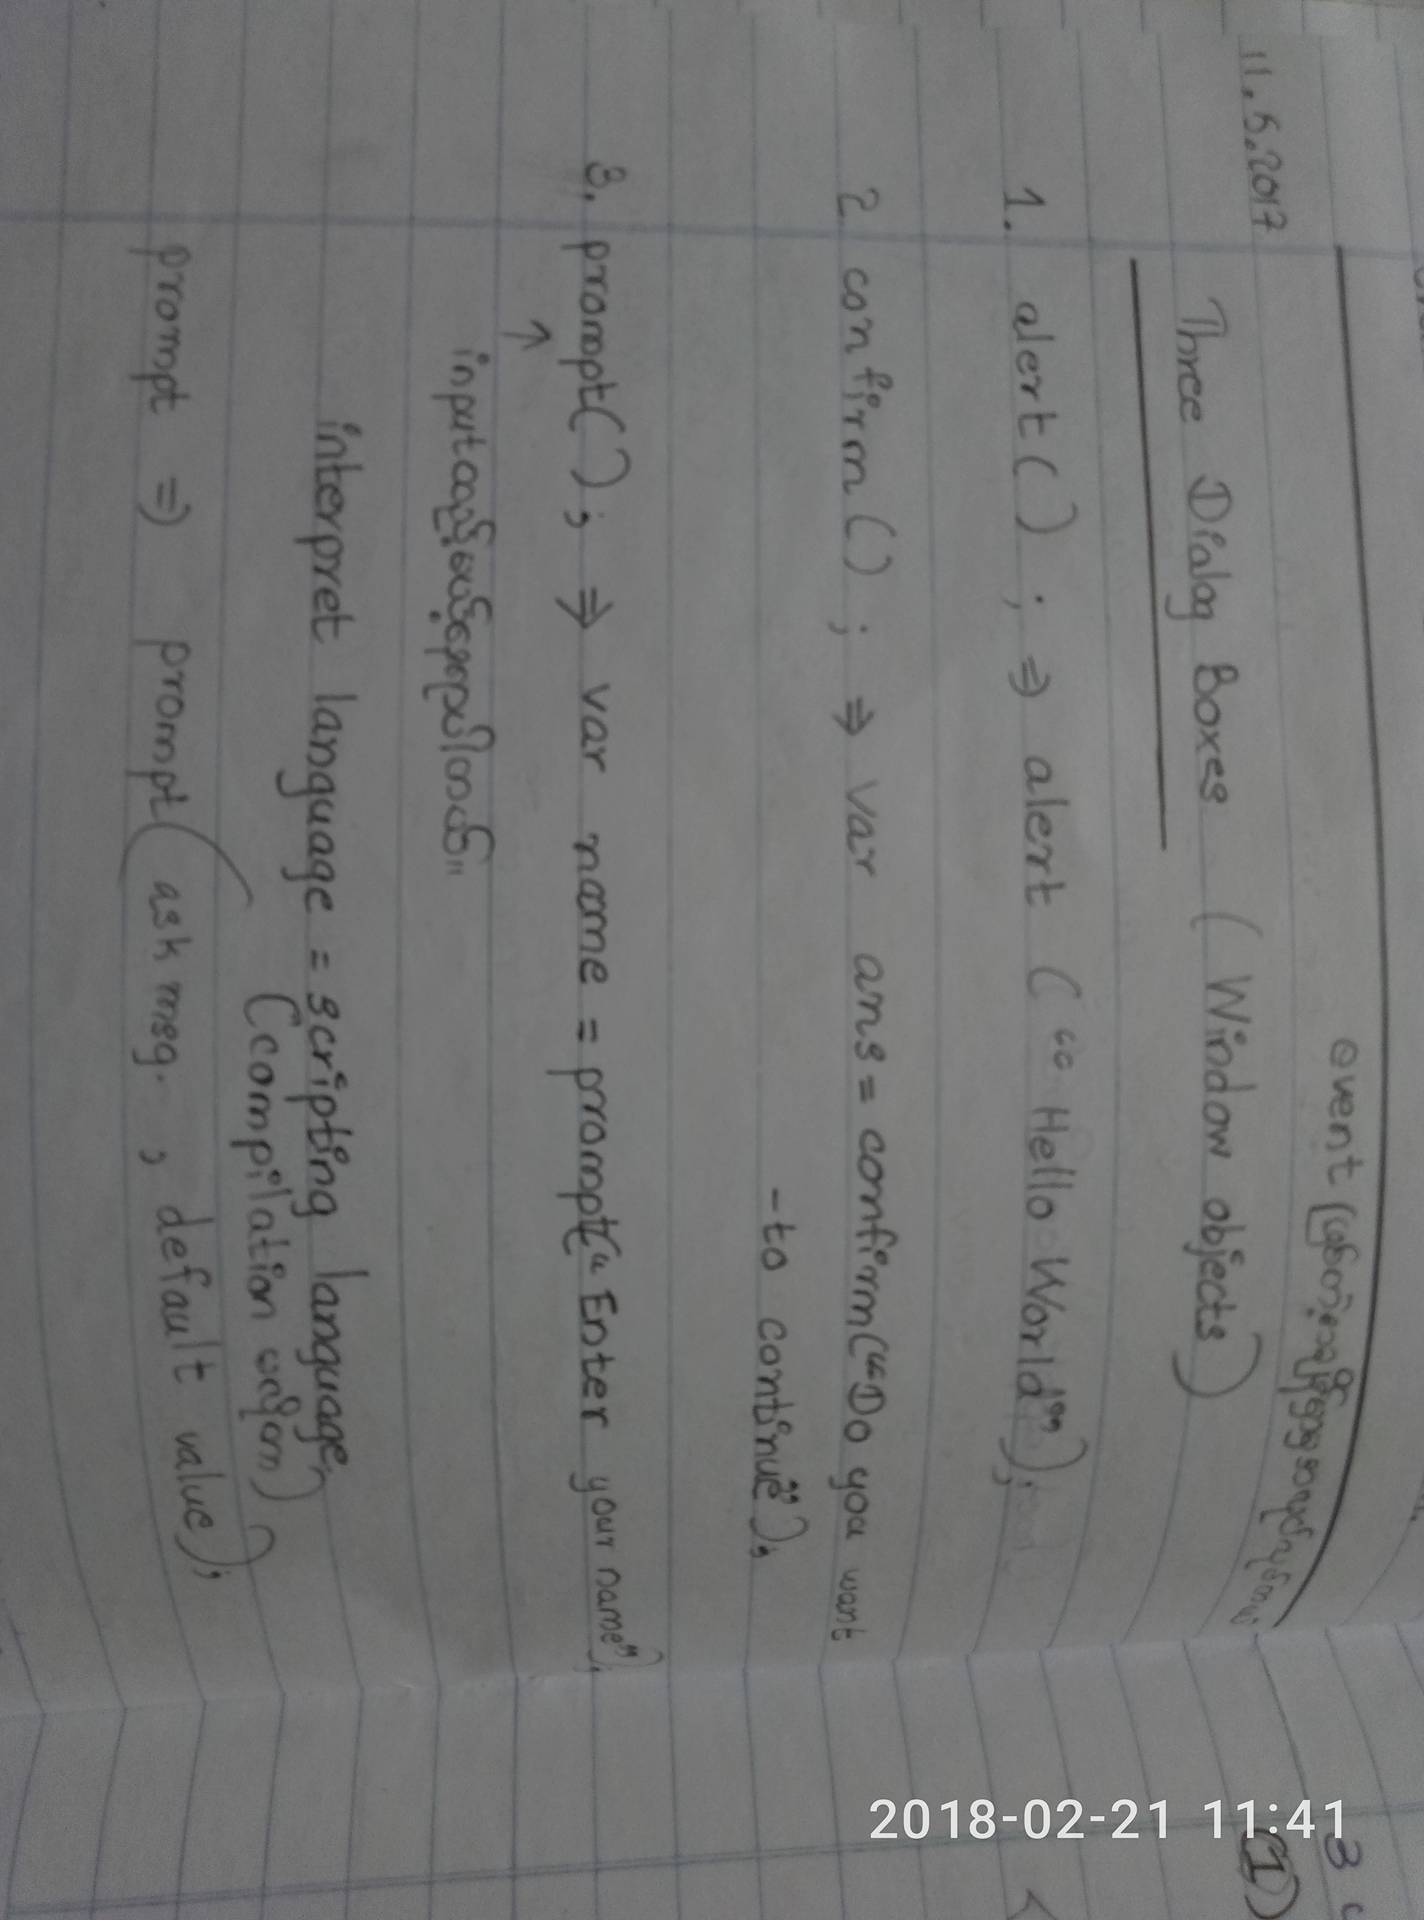 event
11.5.2017
Three Dialog Boxes (Window objects)
1. alert( ) ; ⇒ alert (“Hello World”);
2 confirm( ) ; ⇒ var ans = confirm(“Do you want
-to continue”);
3. prompt( ) ; ⇒ var name = prompt(“Enter your name”);
↑
input ထည့်ပေးရပါတယ်။
interpret language = scripting language,
(compilation မလိုဘူး)
prompt ⇒ prompt(ask msg. , default value);
3
(1)
2018-02-21 11:41